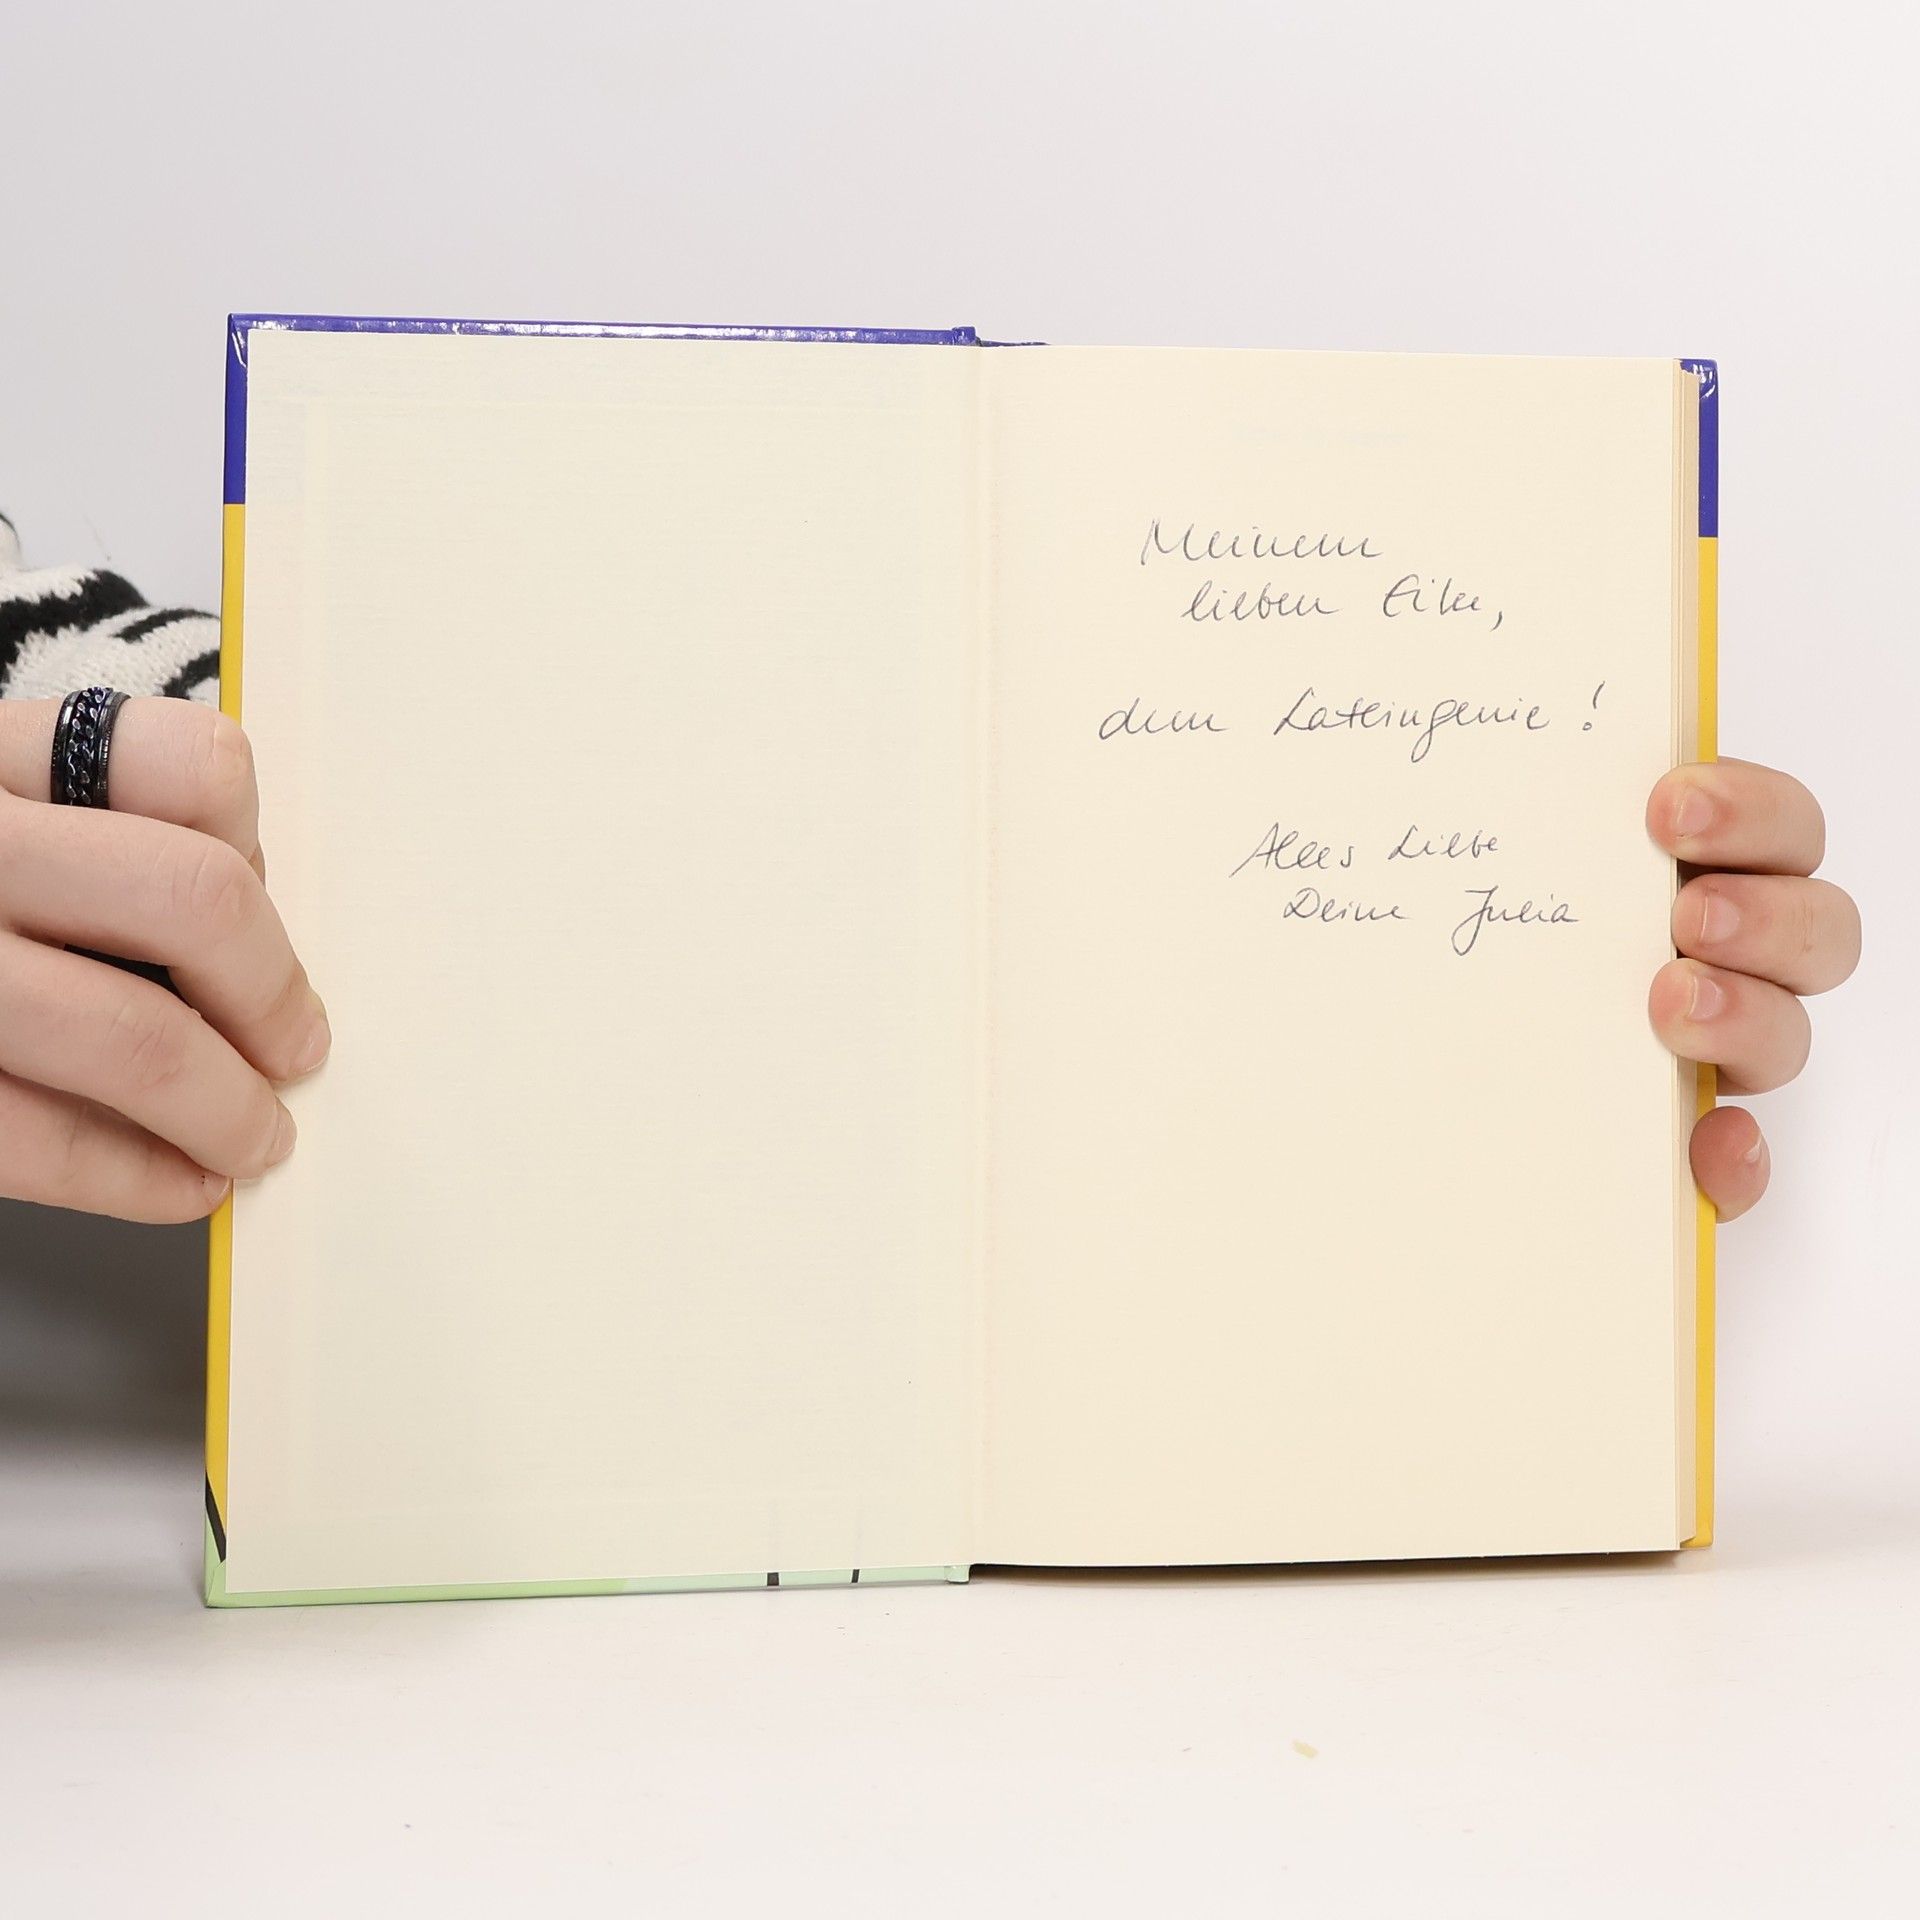 Meinem
lieben Eike,
dem Lateingenie!
Alles Liebe
Deine Julia